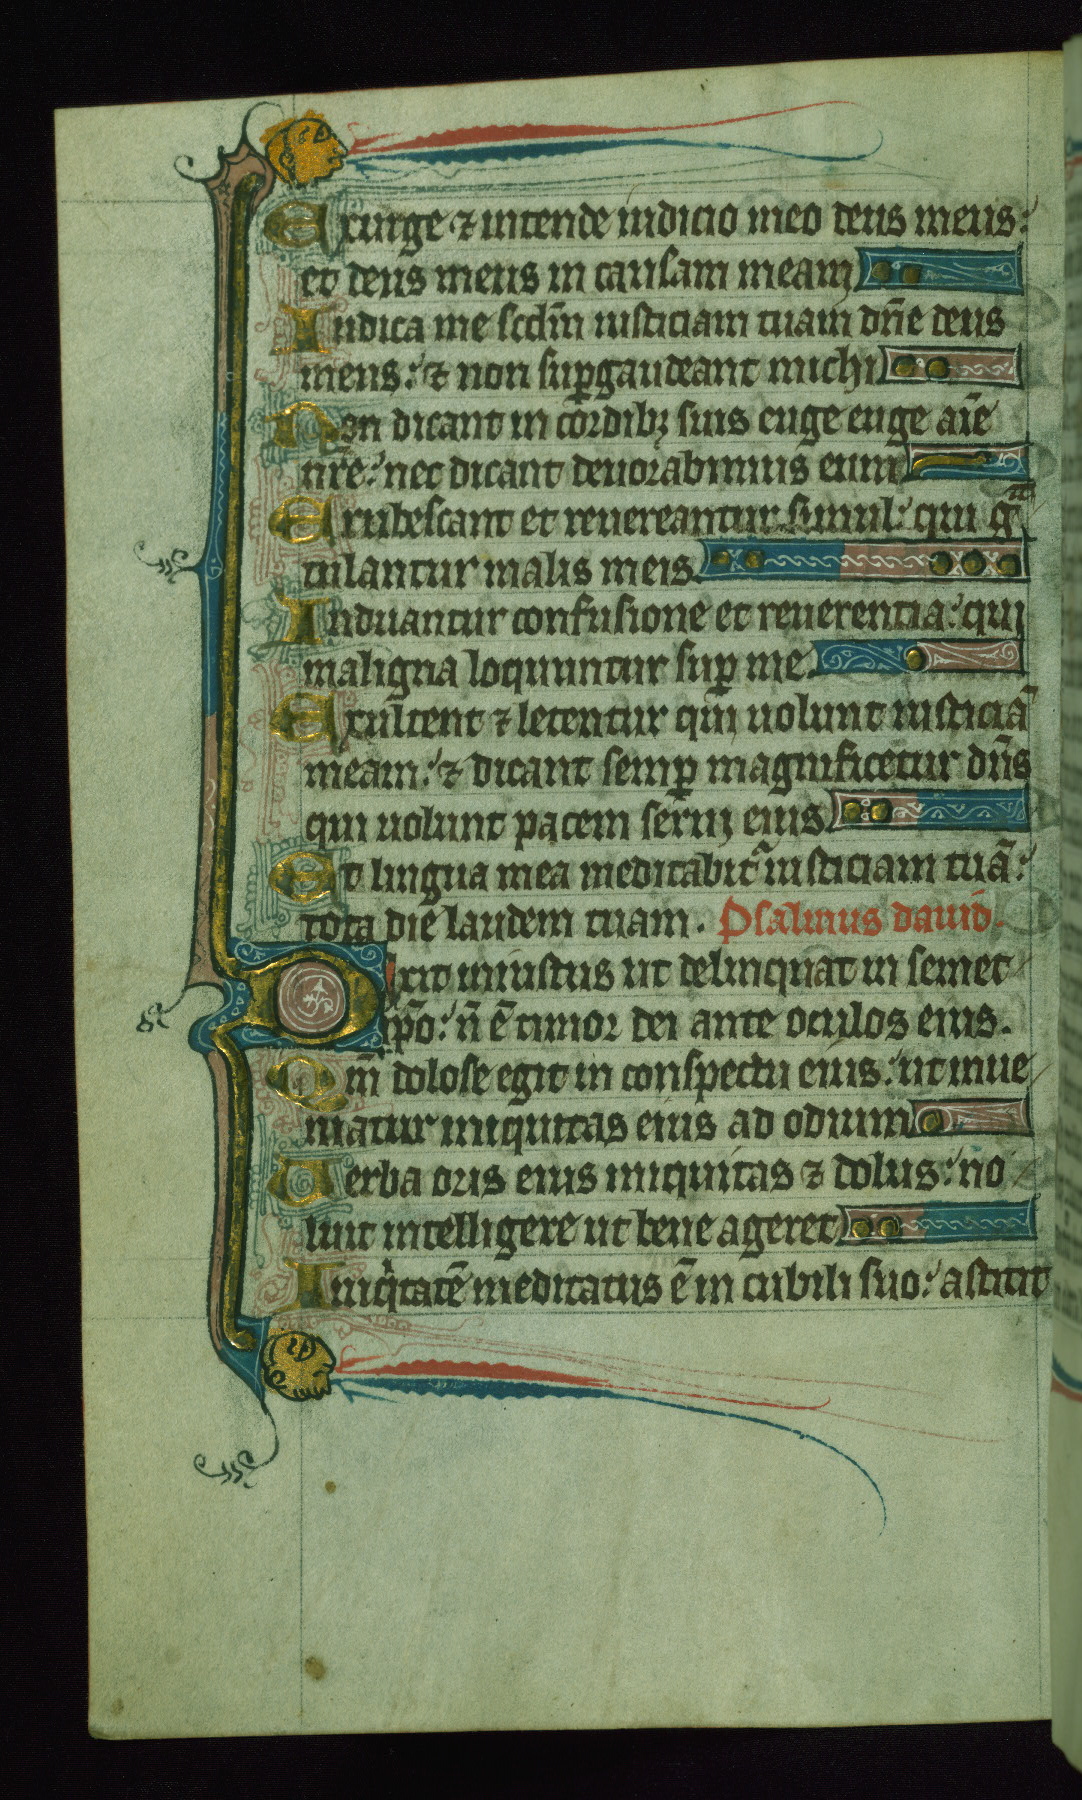 Exurge ⁊ intende iudicio meo deus meus:
et deus meus in causam meam
Iudica me scd̄m iusticiam tuam dn̄e deus
meus: ⁊ non suꝑgaudeant michi
Non dicant in cordibꝫ suis euge euge aīe
nr̄e: nec dicant deuorabimus eum
Erubescant et reuereantur simul: qui gᵃ
tulantur malis meis.
Induantur confusione et reuerentia: qui
maligna loquuntur suꝑ me.
Exultent ⁊ letentur qui uolunt iusticiā
meam: ⁊ dicant semꝑ magnificetur dn̄s
qui uolunt pacem serui eius.
Et lingua mea meditabit᷑ iusticiam tuā:
tota die laudem tuam. Psalmus dauid.
Dixit iniustus ut delinquat in semet
ip̄o: n̄ ē timor dei ante oculos eius.
Qm̄ dolose egit in conspectu eius: ut inue
niatur iniquitas eius ad odium
Uerba oris eius iniquitas ⁊ dolus: no
luit intelligere ut bene ageret
Iniqͥtatē meditatus ē in cubili suo: astitit